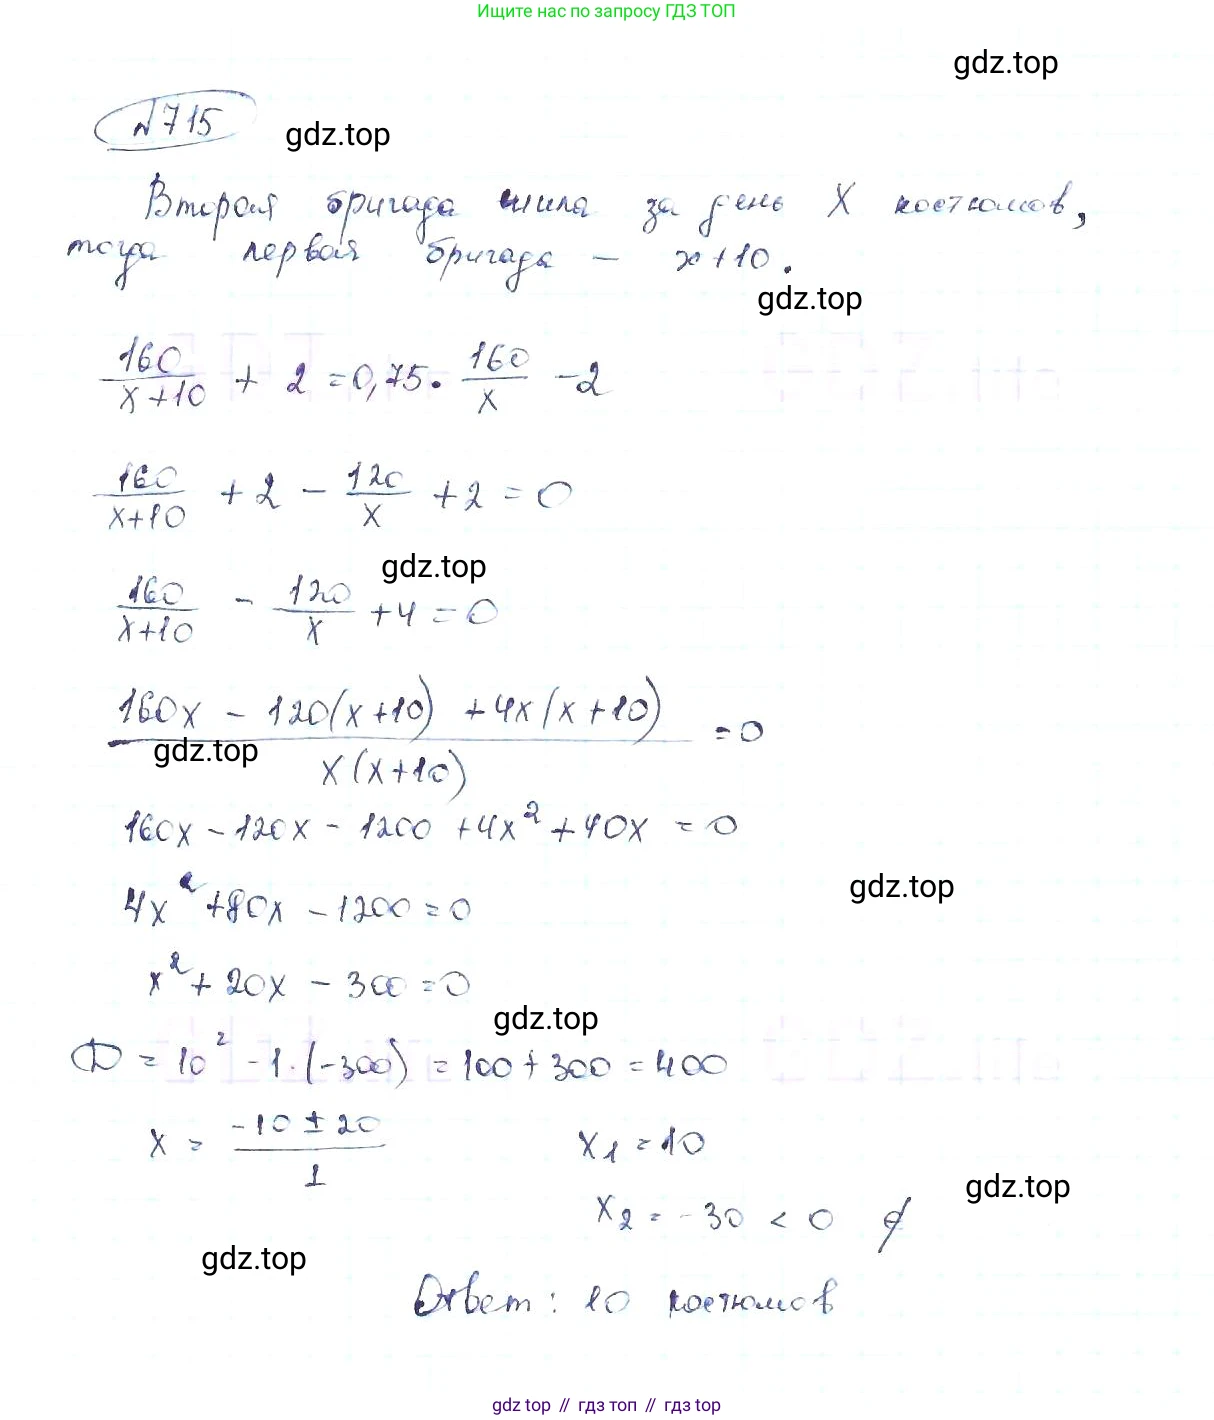 Ищите нас по запросу ГДЗ ТОП
gdz.top
№715
gdz.top
Вторая бригада шила за день X костюмов,
тогда первая бригада – x+10.
gdz.top
160/(x+10) + 2 = 0,75 · 160/x - 2
160/(x+10) + 2 - 120/x + 2 = 0
gdz.top
160/(x+10) - 120/x + 4 = 0
(160x - 120(x+10) + 4x(x+10))/(x(x+10)) = 0
gdz.top
160x - 120x - 1200 + 4x² + 40x = 0
gdz.top
4x² + 80x - 1200 = 0
x² + 20x - 300 = 0
gdz.top
D = 10² - 1·(-300) = 100 + 300 = 400
x = (-10 ± 20)/1 x₁ = 10
gdz.top
x₂ = -30 < 0 ∉
gdz.top
Ответ: 10 костюмов
gdz.top // гдз топ // gdz top